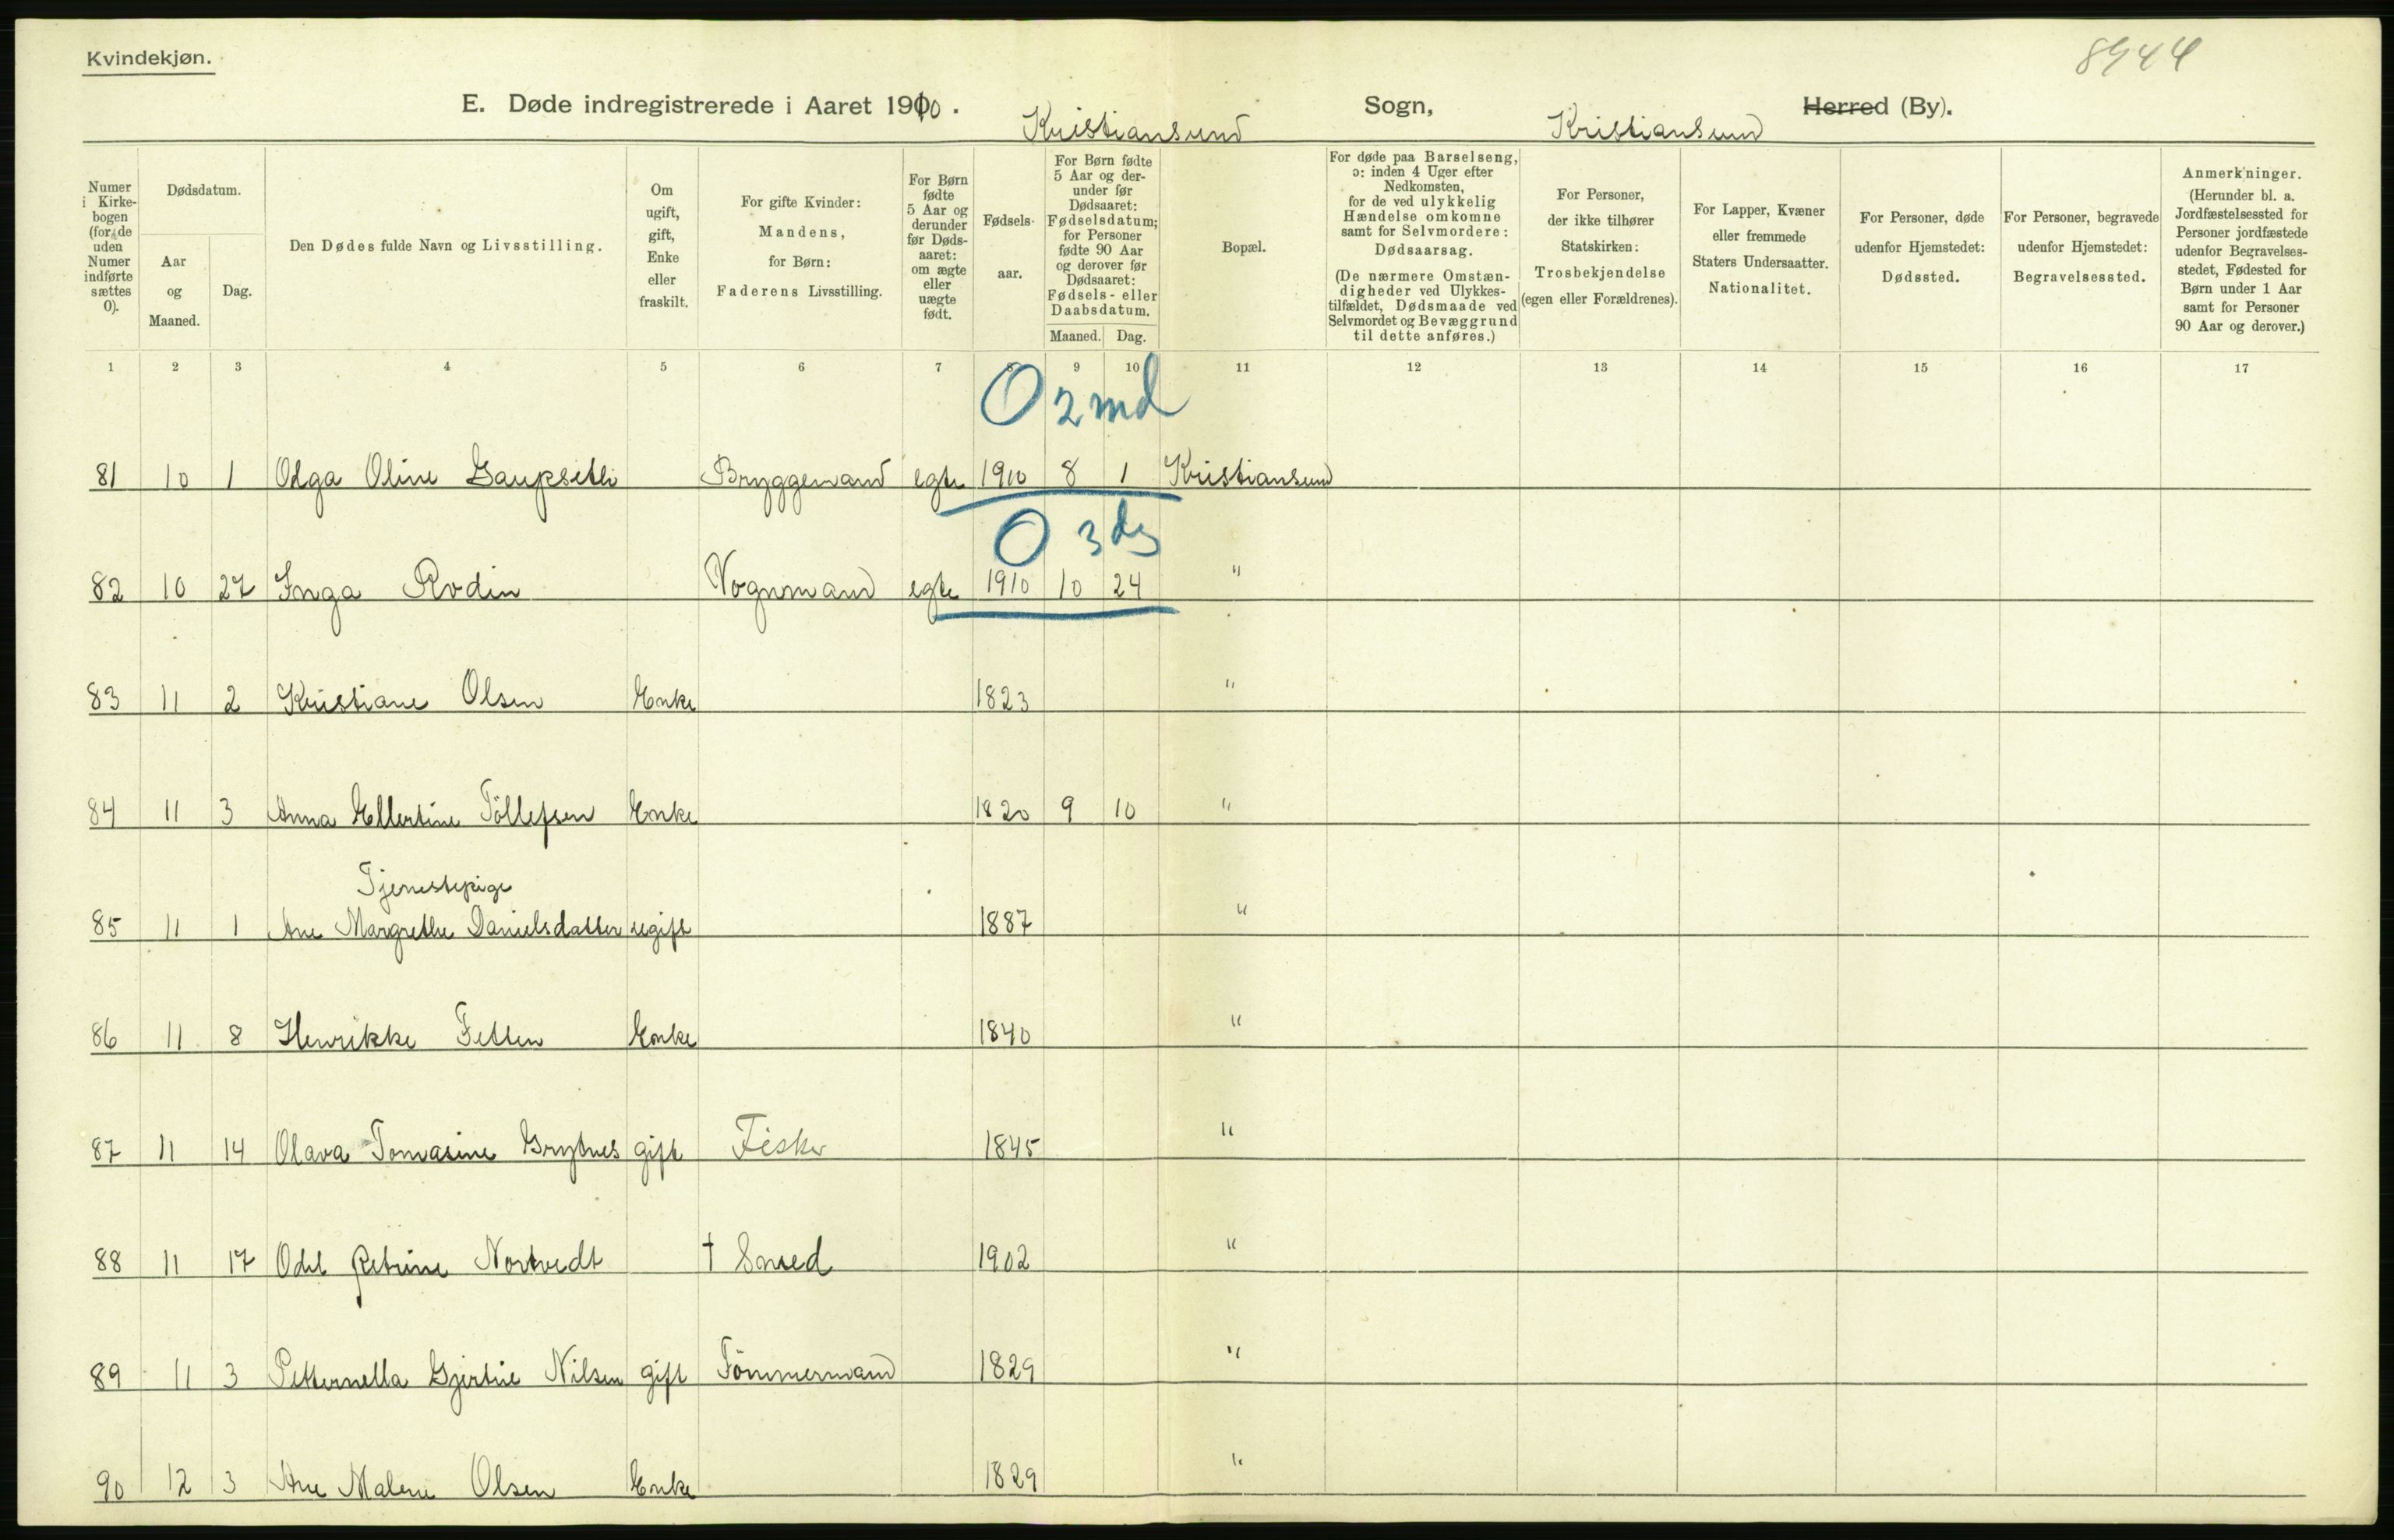 Kvindekjøn.
8944
E. Døde indregistrerede i Aaret 1910. Kristiansund Sogn, Kristiansund Herred (By).
Numer i Kirkebogen (for de uden Numer indførte sættes 0).
Dødsdatum.
Aar og Maaned.
Dag.
Den Dødes fulde Navn og Livsstilling.
Om ugift, gift, Enke eller fraskilt.
For gifte Kvinder: Mandens, for Børn: Faderens Livsstilling.
For Børn fødte 5 Aar og derunder før Dødsaaret: om ægte eller uægte født.
Fødselsaar.
For Børn fødte 5 Aar og derunder før Dødsaaret: Fødselsdatum; for Personer fødte 90 Aar og derover før Dødsaaret: Fødsels- eller Daabsdatum.
Maaned. Dag.
Bopæl.
For døde paa Barselseng, ɔ: inden 4 Uger efter Nedkomsten, for de ved ulykkelig Hændelse omkomne samt for Selvmordere: Dødsaarsag.
(De nærmere Omstændigheder ved Ulykkestilfældet, Dødsmaade ved Selvmordet og Bevæggrund til dette anføres.)
For Personer, der ikke tilhører Statskirken: Trosbekjendelse (egen eller Forældrenes).
For Lapper, Kvæner eller fremmede Staters Undersaatter. Nationalitet.
For Personer, døde udenfor Hjemstedet: Dødssted.
For Personer, begravede udenfor Hjemstedet: Begravelsessted.
Anmerkninger.
(Herunder bl. a. Jordfæstelsessted for Personer jordfæstede udenfor Begravelsesstedet, Fødested for Børn under 1 Aar samt for Personer 90 Aar og derover.)
1 2 3 4 5 6 7 8 9 10 11 12 13 14 15 16 17
0 2 md
81 10 1 Olga Oline Gaupsethi Bryggemand egte 1910 8 1 Kristiansund
0 3 dg
82 10 27 Inga Rodin Vognmand egte 1910 10 24 "
83 11 2 Kristiane Olsen Enke 1823 "
84 11 3 Anna Ellertine Töllefsen Enke 1820 9 10 "
Tjenestepige
85 11 1 Ane Margrethe Danielsdatter ugift 1887 "
86 11 8 Henrikke Fetten Enke 1840 "
87 11 14 Olava Tomasine Grytnes gift Fisker 1845 "
88 11 17 Odel Petrine Nortvedt † Smed 1902 "
89 11 3 Petternella Gjertine Nilsen gift Tömmermand 1829 "
90 12 3 Ane Malene Olsen Enke 1829 "